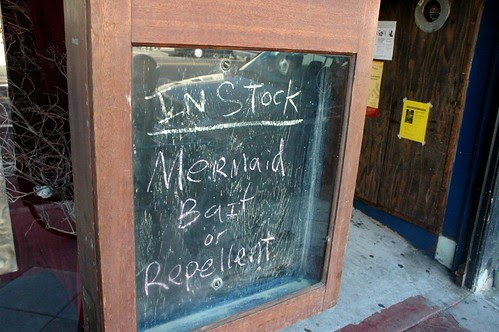 In Stock
Mermaid
Bait
or
Repellent